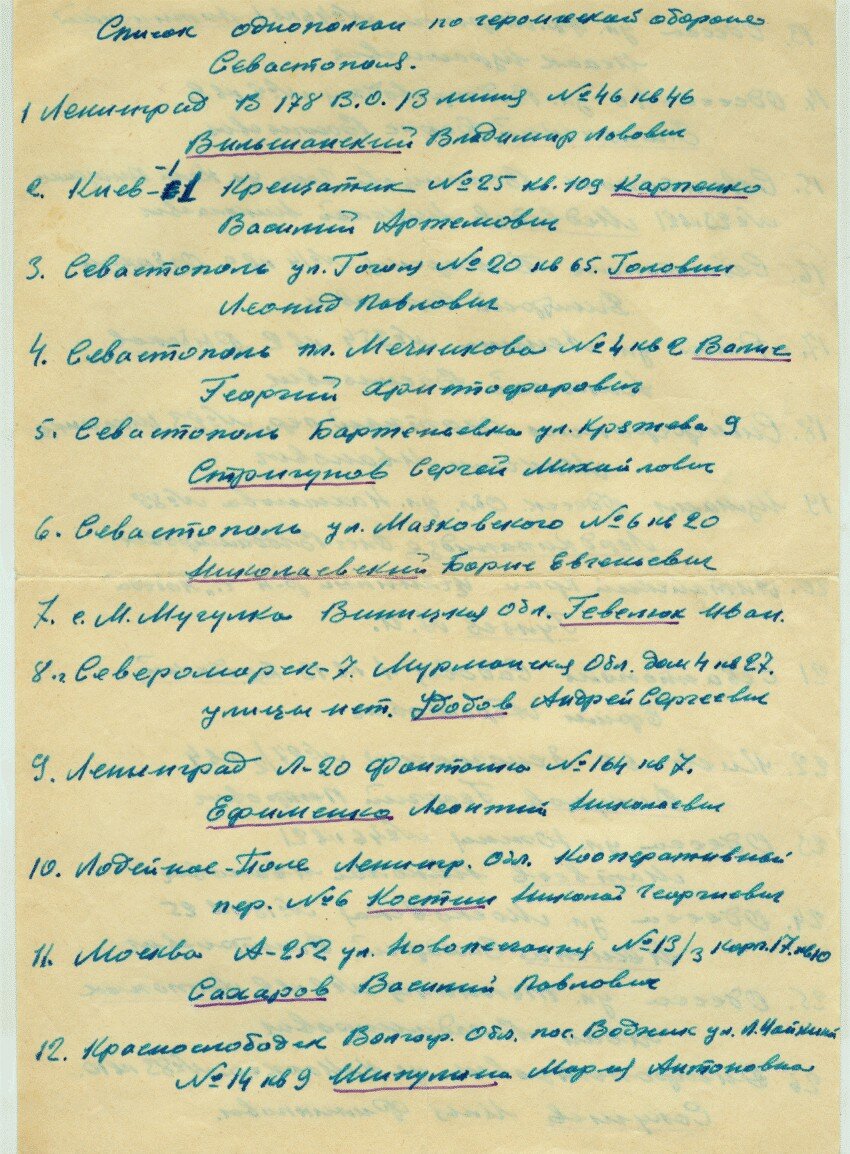 Список однополчан по героической обороне
Севастополя.
1 Ленинград В 178 В.О. 13 линия №46 кв 46
Вильшанский Владимир Львович
2. Киев-1 Крещатик №25 кв. 109 Карпенко
Василий Артемович
3. Севастополь ул. Гоголя №20 кв 65. Головин
Леонид Павлович
4. Севастополь пл. Мечникова №4 кв 2 Валис
Георгий Христофорович
5. Севастополь Бартеньевка ул. Кряжева 9
Стригунов Сергей Михайлович
6. Севастополь ул. Маяковского №6 кв 20
Николаевский Борис Евгеньевич
7. с. М. Мугулка Виницкая Обл. Гевелюк Иван.
8. г Североморск-7. Мурманская Обл. дом 4 кв 27.
улицы нет. Убобов Андрей Сергеевич
9. Ленинград Л-20 Фонтанка №164 кв 7.
Ефименко Леонтий Николаевич
10. Лодейное-Поле Ленингр. Обл. Кооперативный
пер. №6 Костин Николай Георгиевич
11. Москва А-252 ул. Новопесчанная №13/3 Корп. 17. кв 10
Сахаров Василий Павлович
12. Краснослободск Волгогр. Обл. пос. Водник ул. Л. Чайкиной
№14 кв 9 Шипулина Мария Антоновна